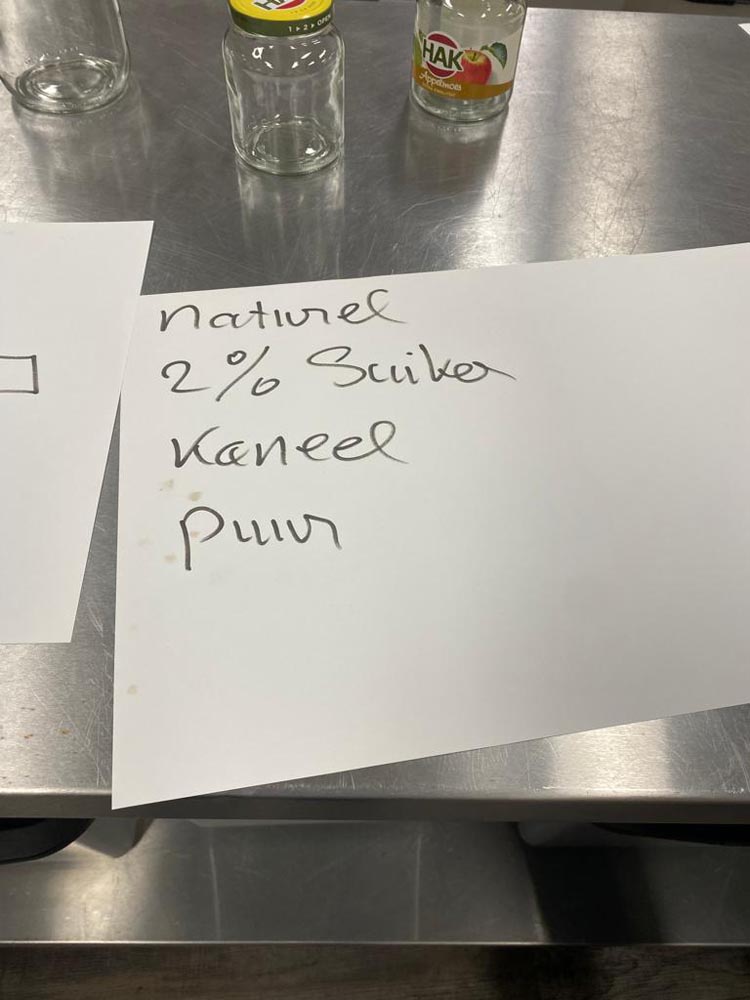 1 ▸ 2 ▸ OPEN
HAK
Appelmoes
naturel
2% Suiker
Kaneel
puur